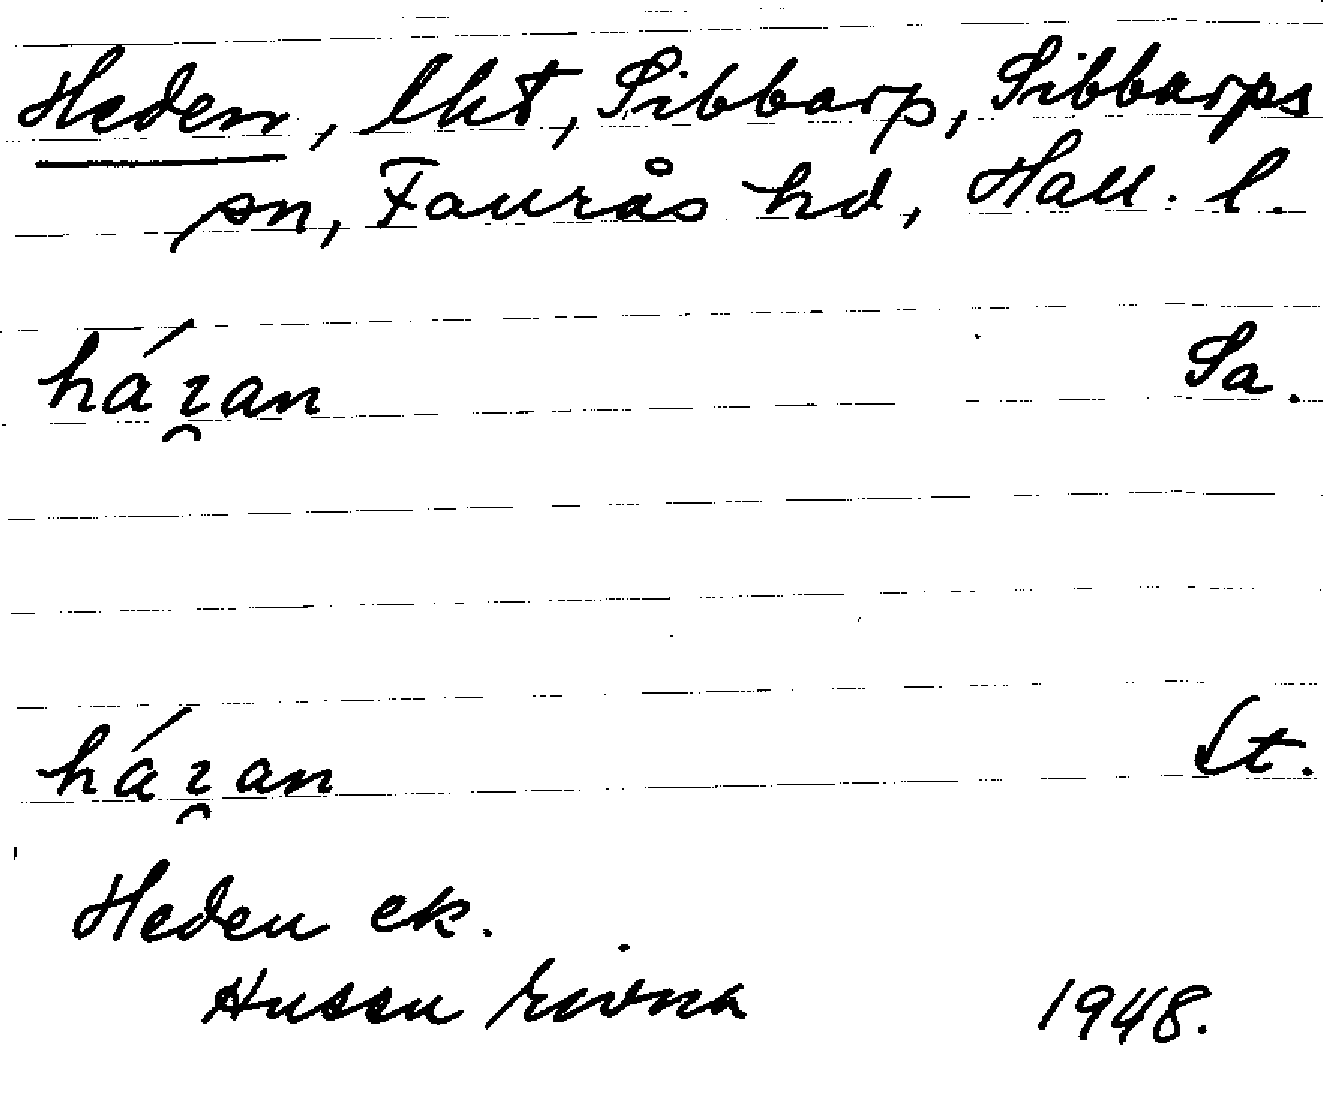 Heden, lkt, Sibbarp, Sibbarps
sn, Faurås hd, Hall. l.
Sa.
St.
Heden ek.
Husen rivna 1948.